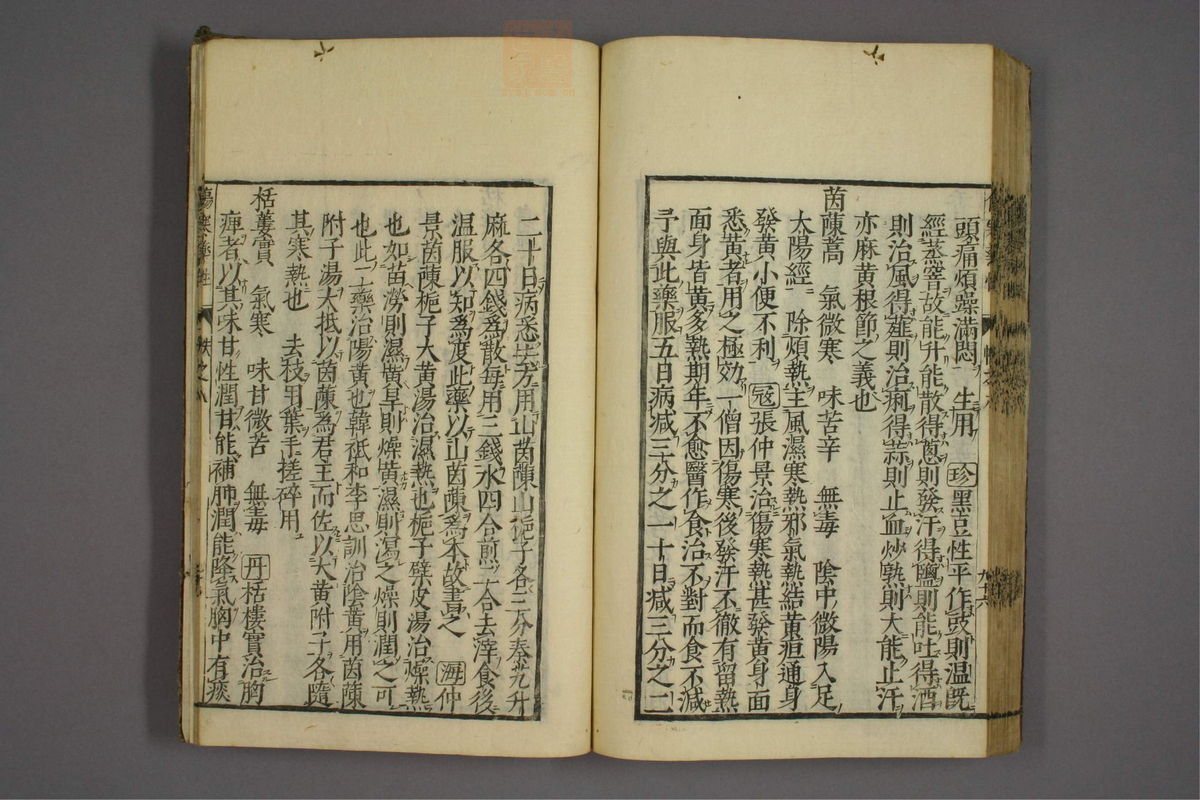 頭痛煩躁滿悶　生用　珍黑豆性平作豉則温既
經蒸窨故能升能散得蔥則發汗得鹽則能吐得酒
則治風得薤則治痢得蒜則止血炒熟則大能止汗
亦麻黄根節之義也
茵蔯蒿　氣微寒　味苦辛　無毒　陰中微陽入足
太陽經　除煩熱主風濕寒熱邪氣熱結黄疸通身
發黄小便不利　冦張仲景治傷寒熱甚發黄身面
悉黄者用之極効一僧因傷寒後發汗不徹有留熱
面身皆黄多熱期年不愈醫作食治不對而食不減
予與此藥服五日病減三分之一十日減三分之二
九十六
二十日病悉去方用山茵蔯山梔子各三分秦艽升
麻各四錢爲散每用三錢水四合煎二合去滓食後
温服以知爲度此藥以山茵蔯爲本故書之　海仲
景茵蔯梔子大黄湯治濕熱也梔子蘗皮湯治燥熱
也如苗澇則濕黄旱則燥黄濕則瀉之燥則潤之可
也此二藥治陽黄也韓祗和李思訓治陰黄用茵蔯
附子湯大抵以茵蔯爲君主而佐以大黄附子各隨
其寒熱也　去枝用葉手搓碎用
栝蔞實　氣寒　味甘微苦　無毒　丹栝樓實治胸
痺者以其味甘性潤甘能補肺潤能降氣胸中有痰
傷寒藥性　帙之八